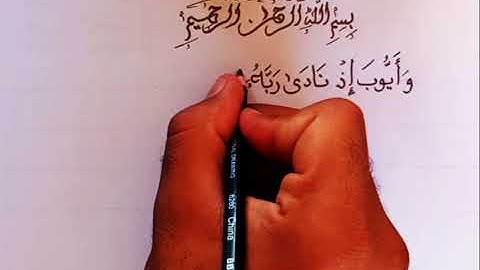 بِسْمِ اللّٰهِ الرَّحْمٰنِ الرَّحِيمِ
وَأَيُّوبَ إِذْ نَادَىٰ رَبَّهُ
6290 China